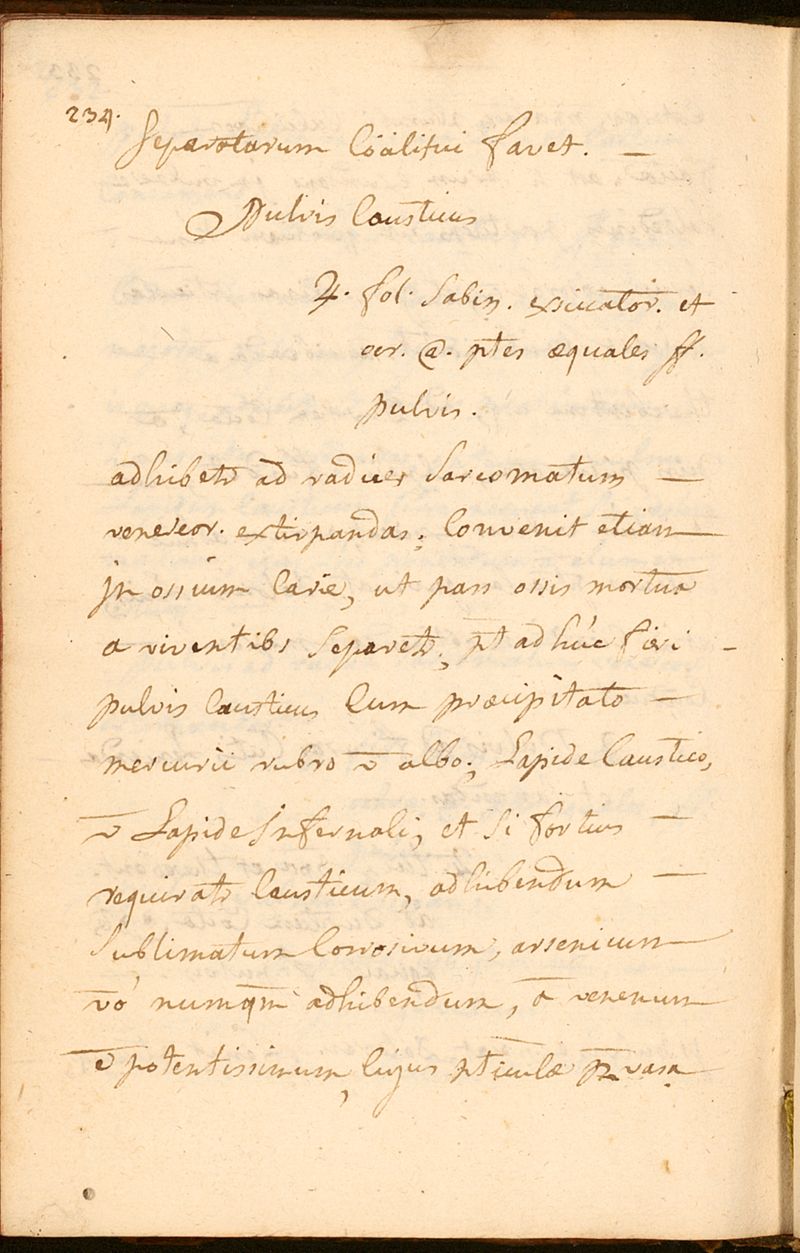 234.
Separatarum Coälitui favet. —
Pulvis Causticus
♃. fol. Sabin. exsiccator. et
 @. ptes æquales ff.
pulvis.
adhibetr ad radices Sarcomatum —
venereor. extirpandas; Convenit etiam
jn ossium Carie, ut pars ossis mortua
a viventibs Separetr; pt adhúc fieri -
pulvis Causticus Cum præcipitato —
mercurii rubro v albo; Lapide Caustico,
v Lapide Jnfernali, et Si fortius —
requiratr Causticum, adhibendum —
Sublimatum Corrosivum, arsenicum
vó numqm adhibendum, venenum
e potentissimum, Cujus pticulæ vasa